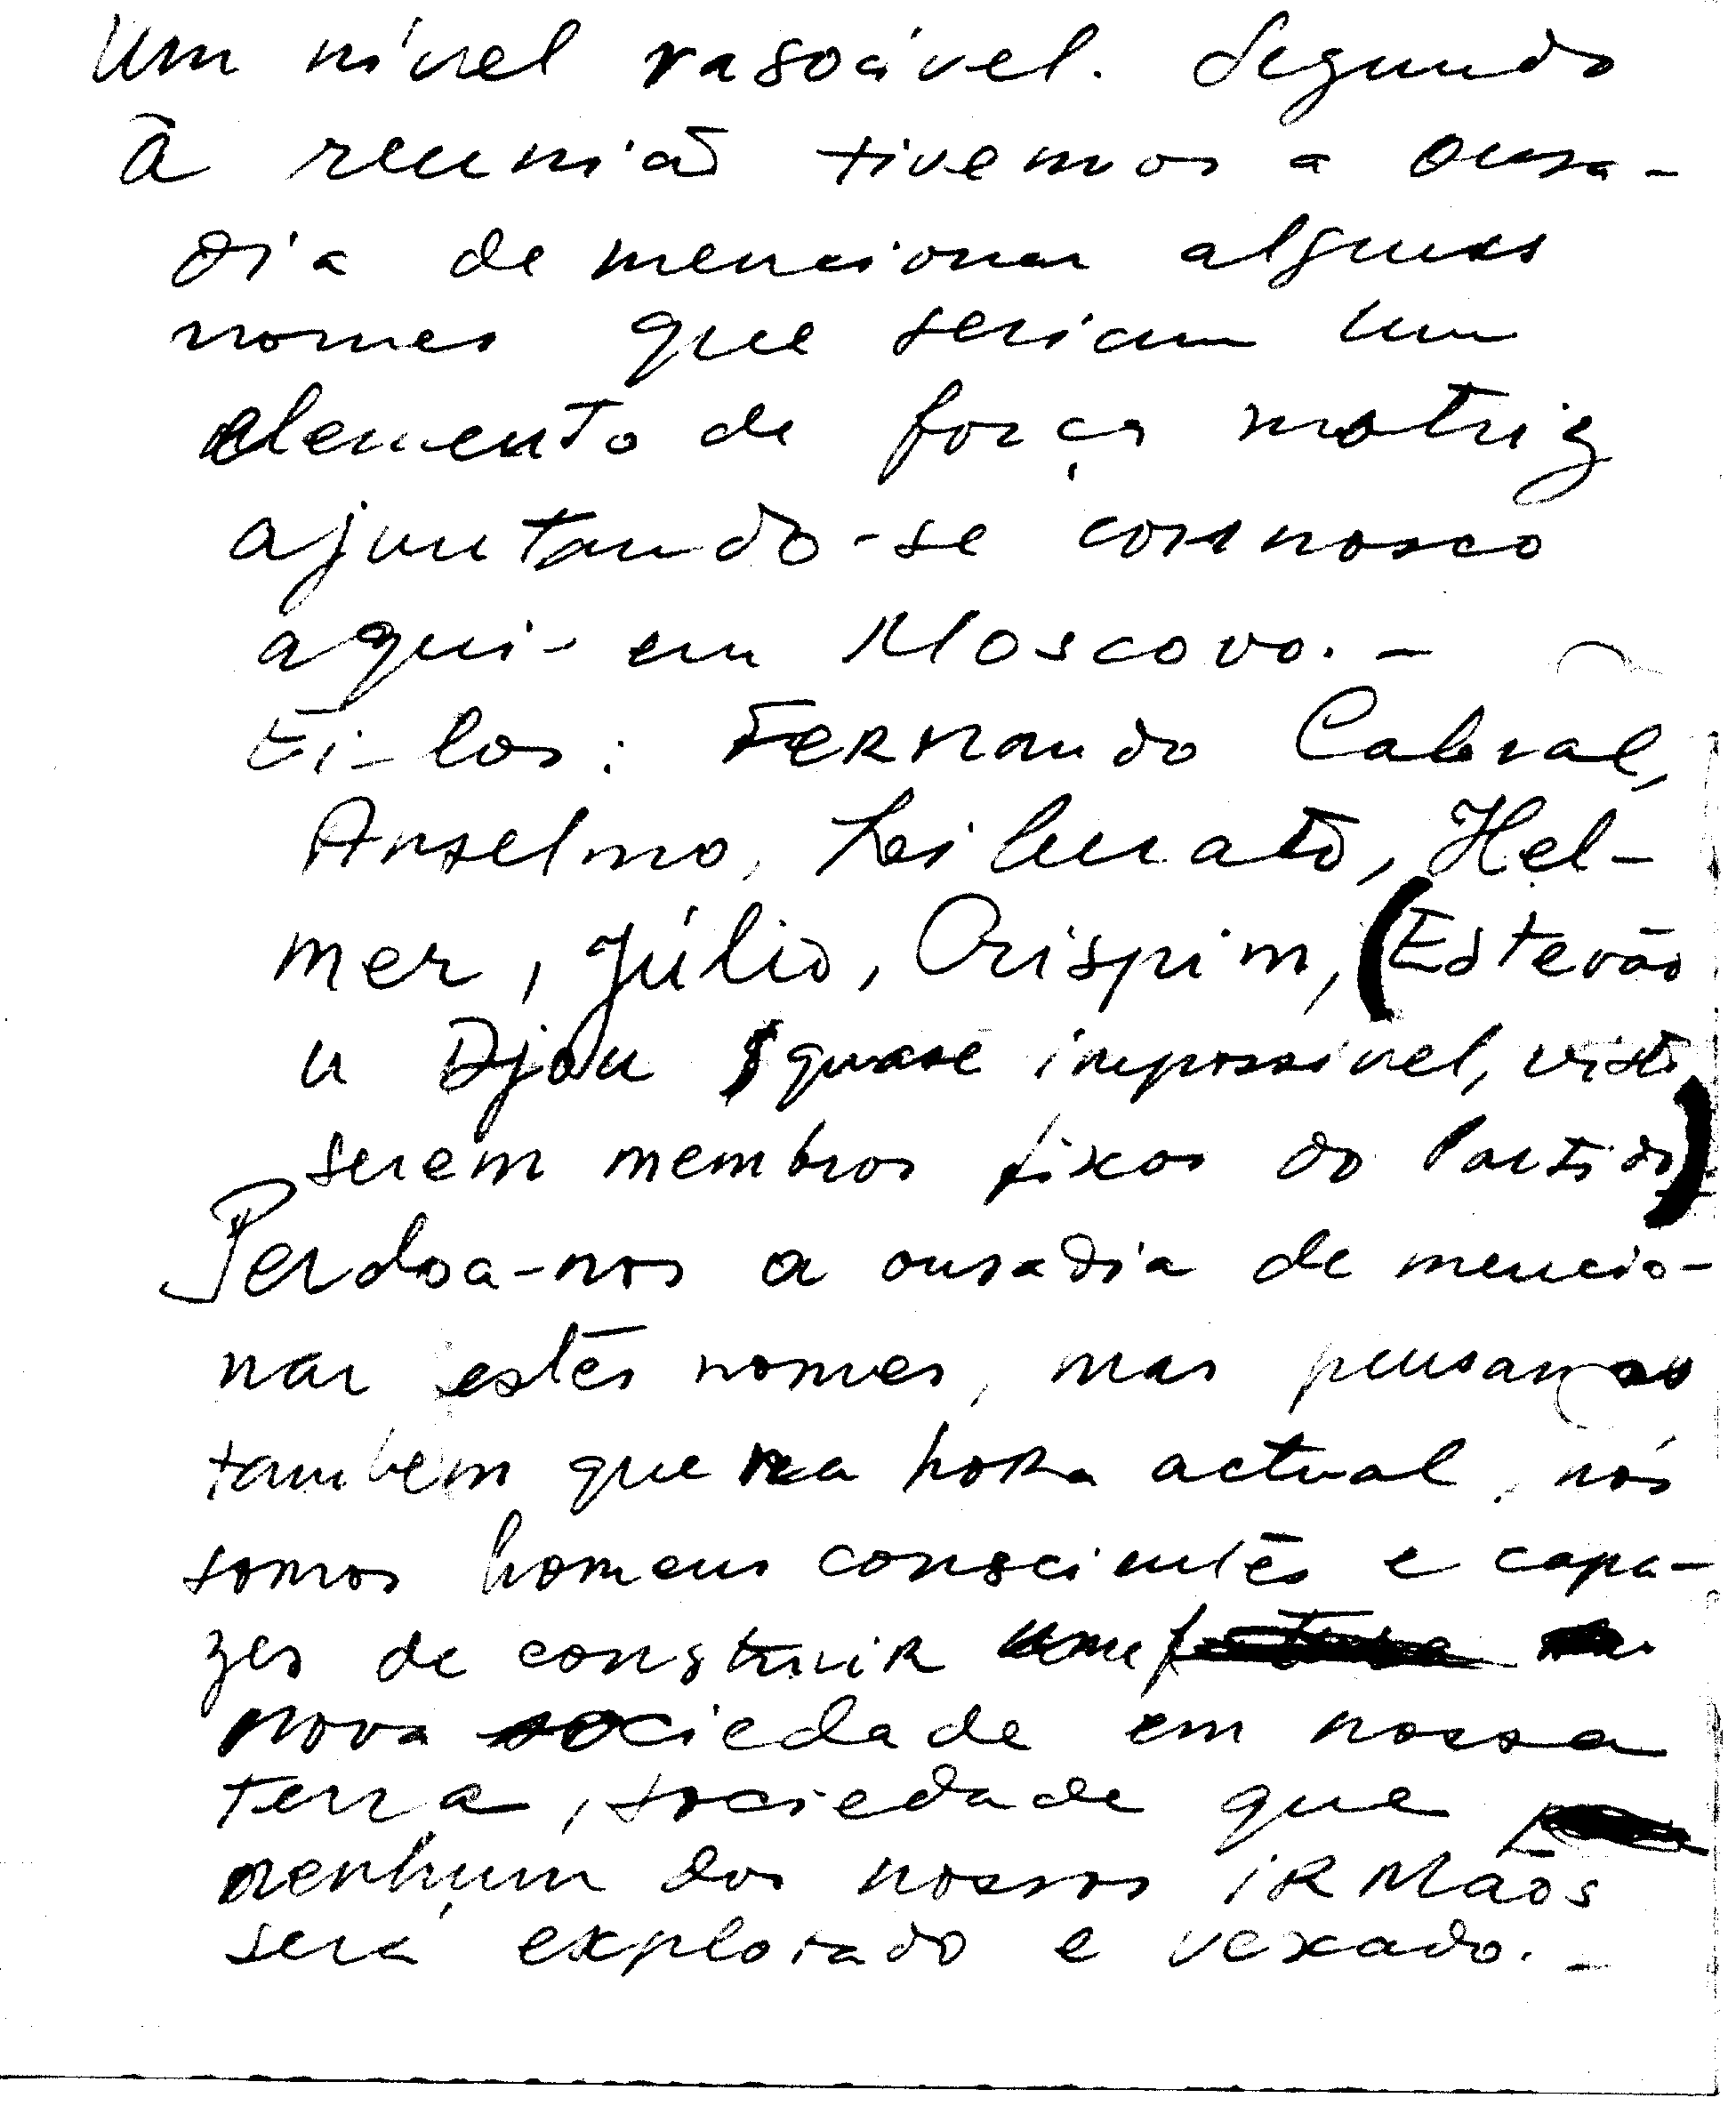 Um nível rasoável. Segundo
à reunião tivemos a ousa-
dia de mencionar alguns
nomes que seriam um
elemento de força motriz
ajuntando-se comnosco
aqui- em Moscovo.-
Ei-los: Fernando Cabral,
Anselmo, Leiberato, Hel-
mer, Júlio, Crispim, (Estevão
u Djau quase impossível, visto
serem membros fixos do Partido)
Perdoa-nos a ousadia de mencio-
nar estes nomes, mas pensamos
também que na hora actual, nós
somos homens conscientes e capa-
zes de construir uma
nova sociedade em nossa
terra, sociedade que
nenhum dos nossos irmãos
será explorado e vexado.-